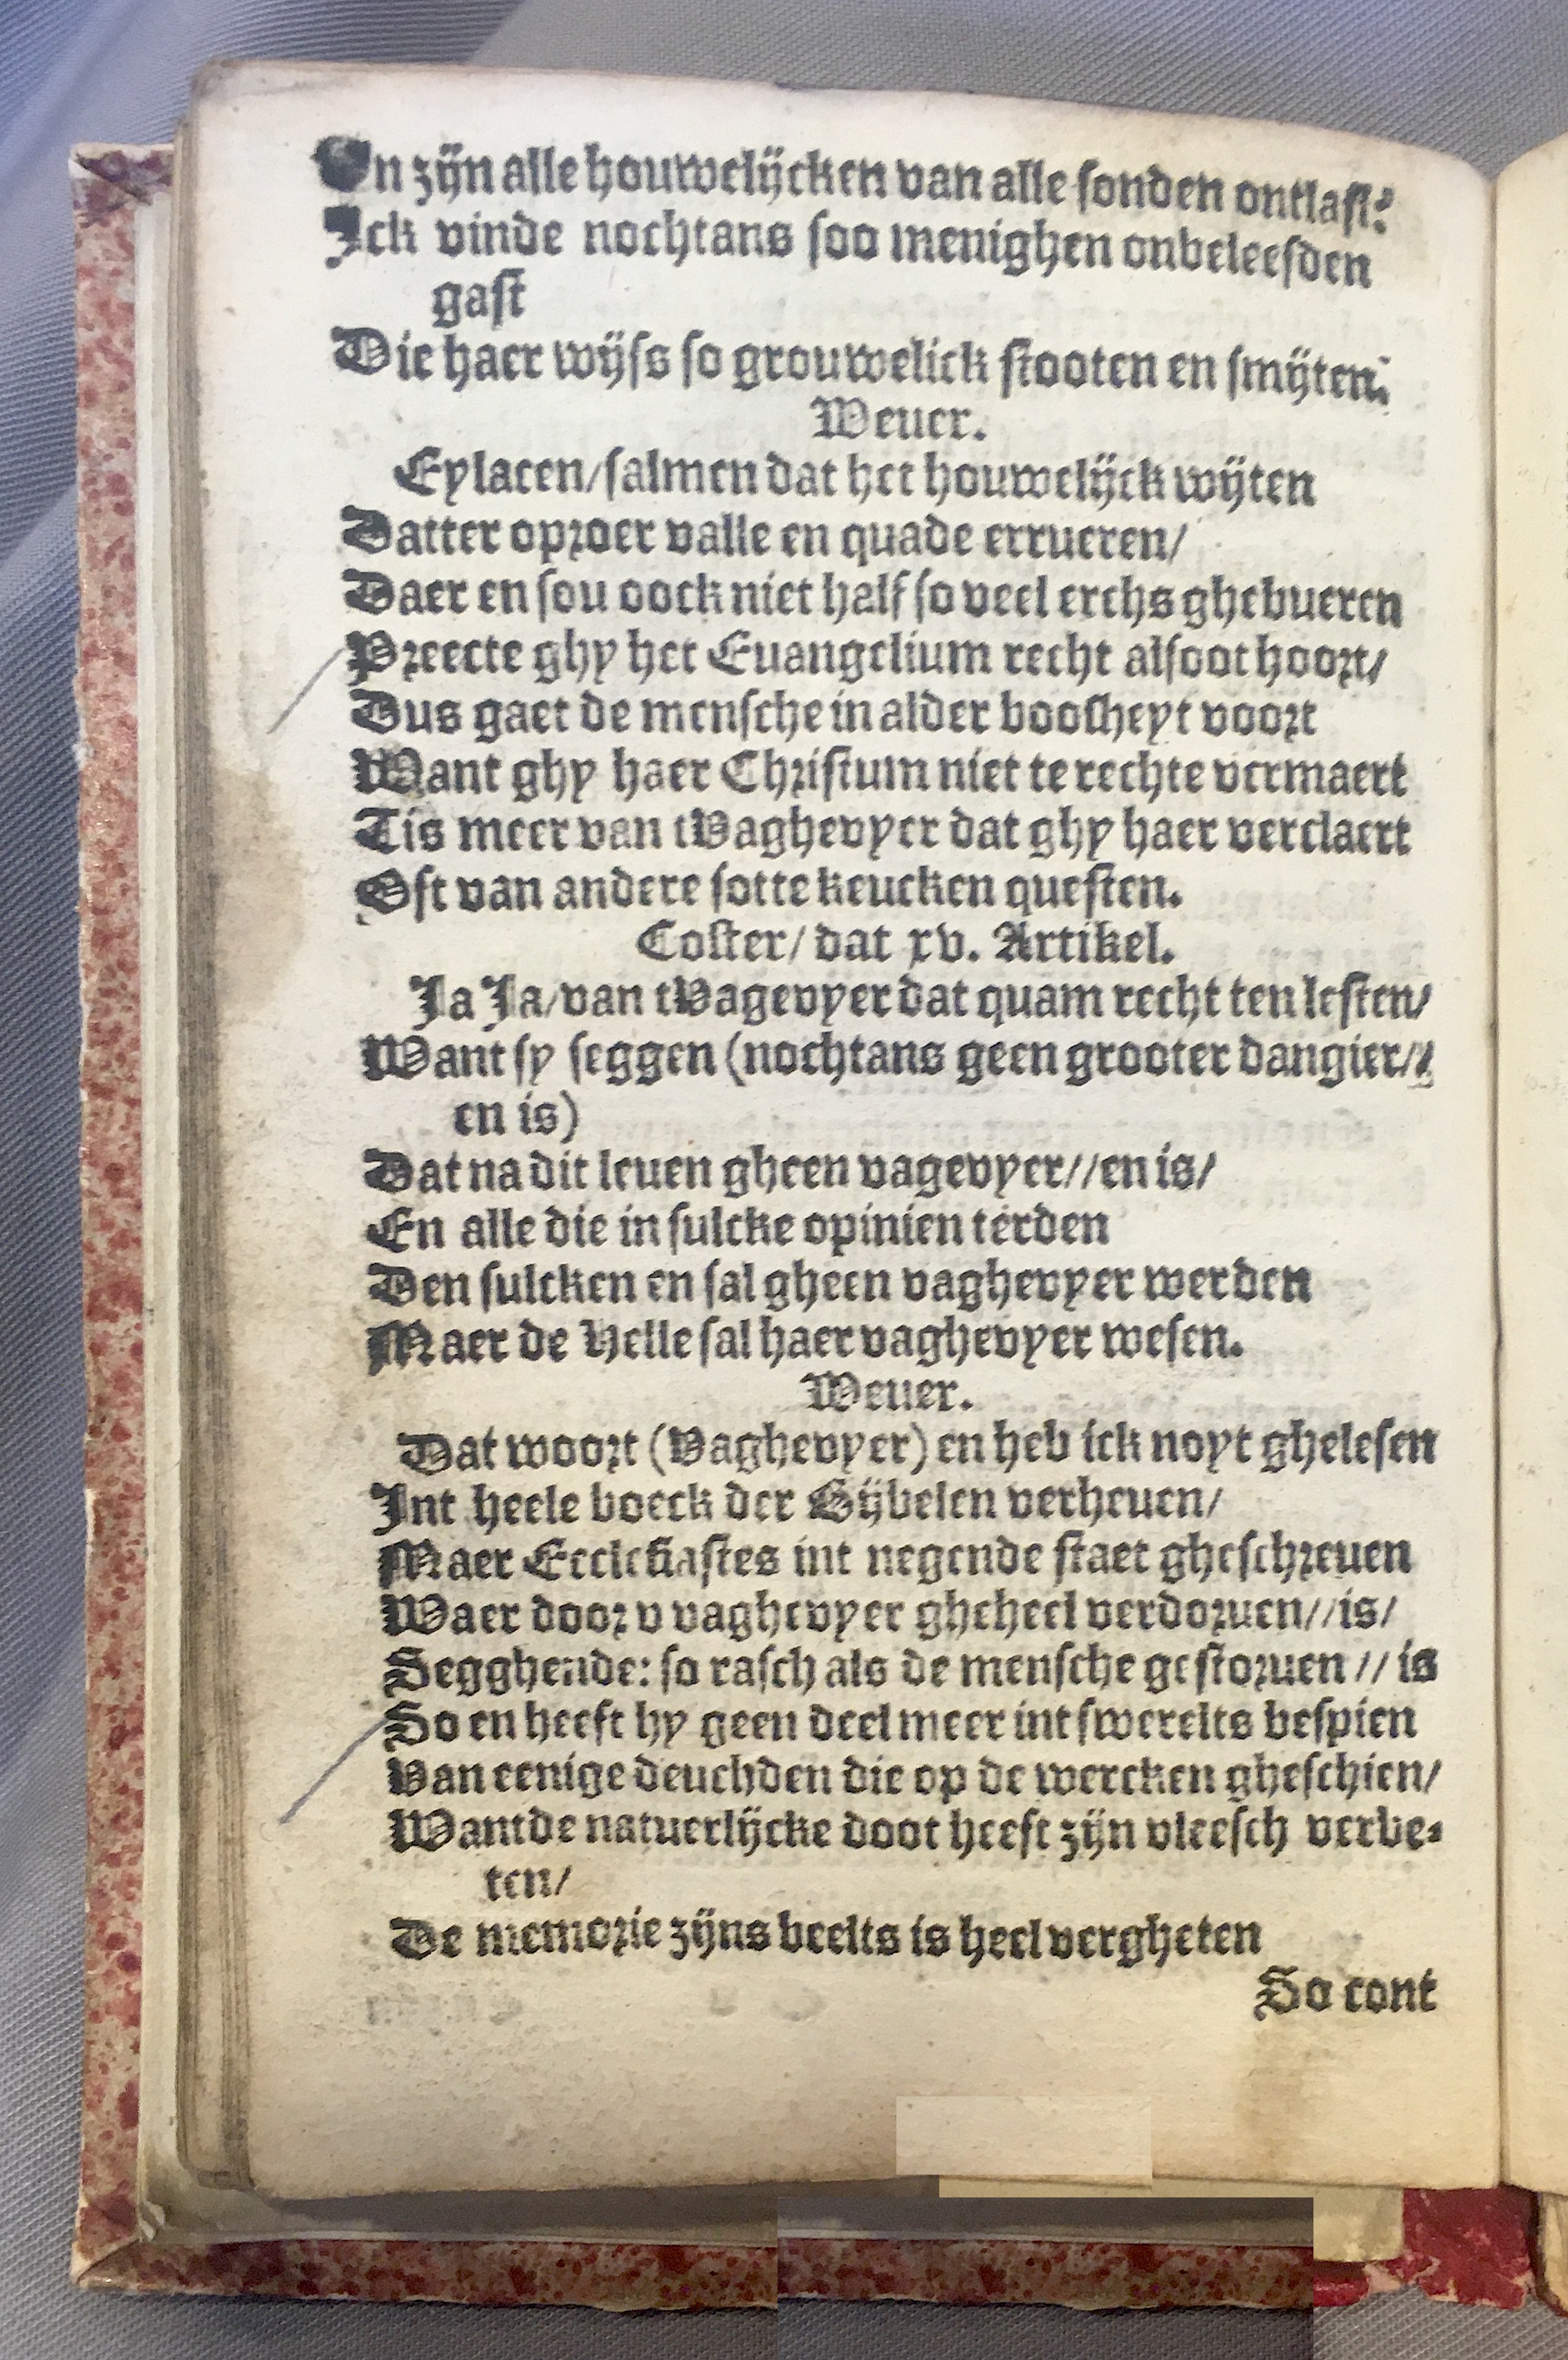 En zijn alle houwelijcken van alle sonden ontlast?
Ick vinde nochtans soo menighen onbeleefden
gast
Die haer wijfs so grouwelick stooten en smijten.
Weuer.
Eylacen/salmen dat het houwelijck wijten
Datter oproer valle en quade errueren/
Daer en sou oock niet half so veel erchs ghebueren
Preecte ghy het Euangelium recht alsoot hoort/
Dus gaet de mensche in alder boosheyt voort
Want ghy haer Christum niet te rechte vermaert
Tis meer van tVaghevyer dat ghy haer verclaert
Oft van andere sotte keucken questen.
Coster/ dat xv. Artikel.
Ja Ja/van tVagevyer dat quam recht ten lesten/
Want sy seggen (nochtans geen grooter dangier//
en is)
Dat na dit leuen gheen vagevyer//en is/
En alle die in sulcke opinien terden
Den sulcken en sal gheen vaghevyer werden
Maer de Helle sal haer vaghevyer wesen.
Weuer.
Dat woort (Vaghevyer) en heb ick noyt ghelesen
Int heele boeck der Bijbelen verheuen/
Maer Ecclesiastes int negende staet gheschreuen
Waer door v vaghevyer gheheel verdoruen//is/
Segghende: so rasch als de mensche gestoruen // is
So en heeft hy geen deel meer int swerelts bespien
Van eenige deuchden die op de wercken gheschien/
Want de natuerlijcke doot heeft zijn vleesch verbe-
ten/
De memorie zijns beelts is heel vergheten
So cont